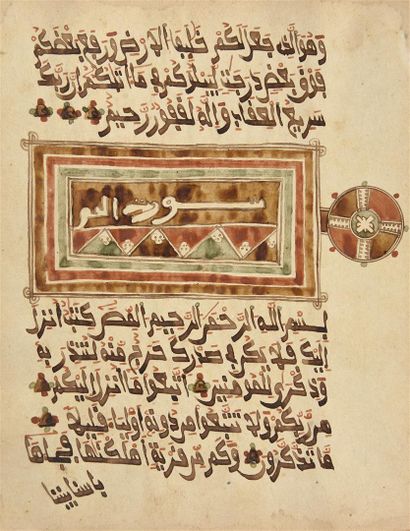 وهو الذي جعلكم خلئف الارض ورفع بعضكم
فوق بعض درجت ليبلوكم في ما اتيكم ان ربك
سريع العقاب وانه لغفور رحيم
سورت المص
بسم الله الرحمن الرحيم المص كتب انزل
اليك فلا يكن في صدرك حرج منه لتنذر به
وذكرى للمومنين اتبعوا ما انزل اليكم
من ربكم ولا تتبعوا من دونه اولياء قليلا
ما تذكرون وكم من قرية اهلكنها فجاءها
باسنا بيتا